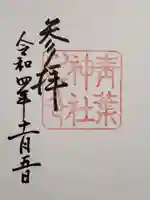 参拝
青葉
神社
令和四年十一月五日